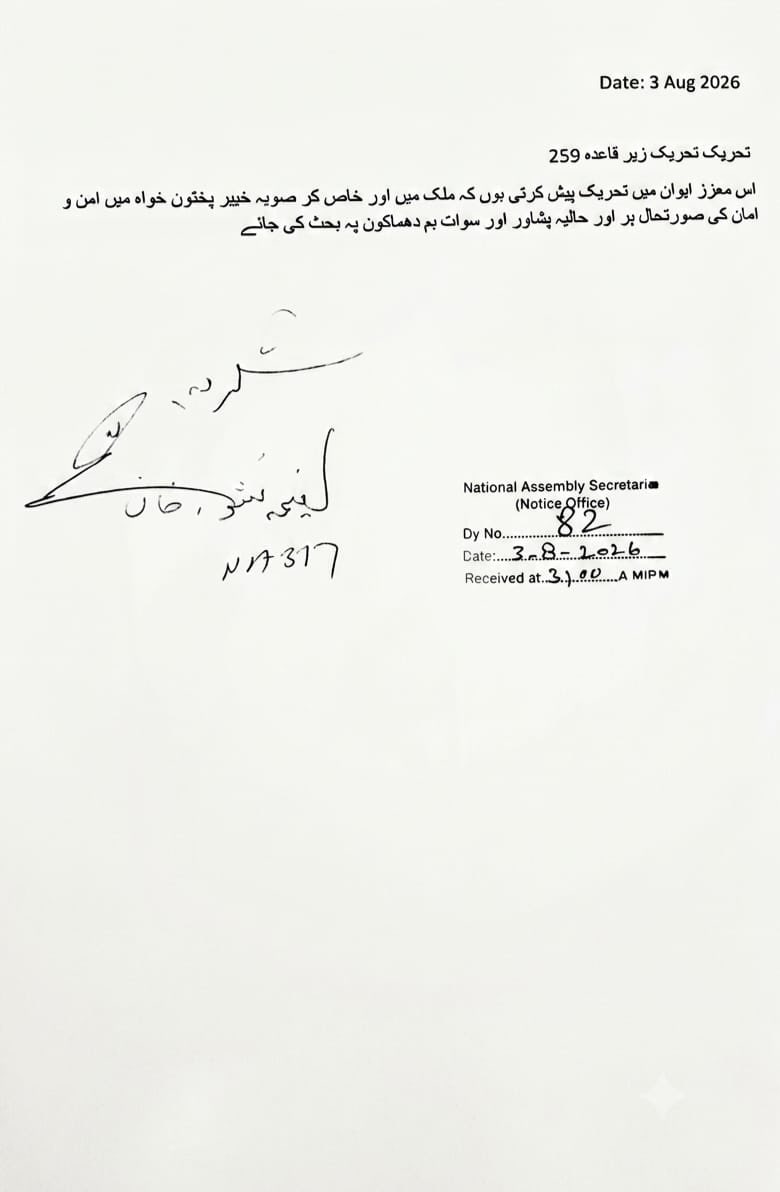 Date: 3 Aug 2026
تحریک تحریک زیر قاعدہ 259
اس معزز ایوان میں تحریک پیش کرتی ہوں کہ ملک میں اور خاص کر صوبہ خیبر پختون خواہ میں امن و
امان کی صورتحال پر اور حالیہ پشاور اور سوات بم دھماکوں پہ بحث کی جائے
خان
NA 377
National Assembly Secretari
(Notice Office)
Dy No. 82
Date: 3-8-2026
Received at 3:00 A M|P M